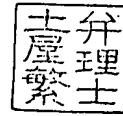 弁理士
土屋繁